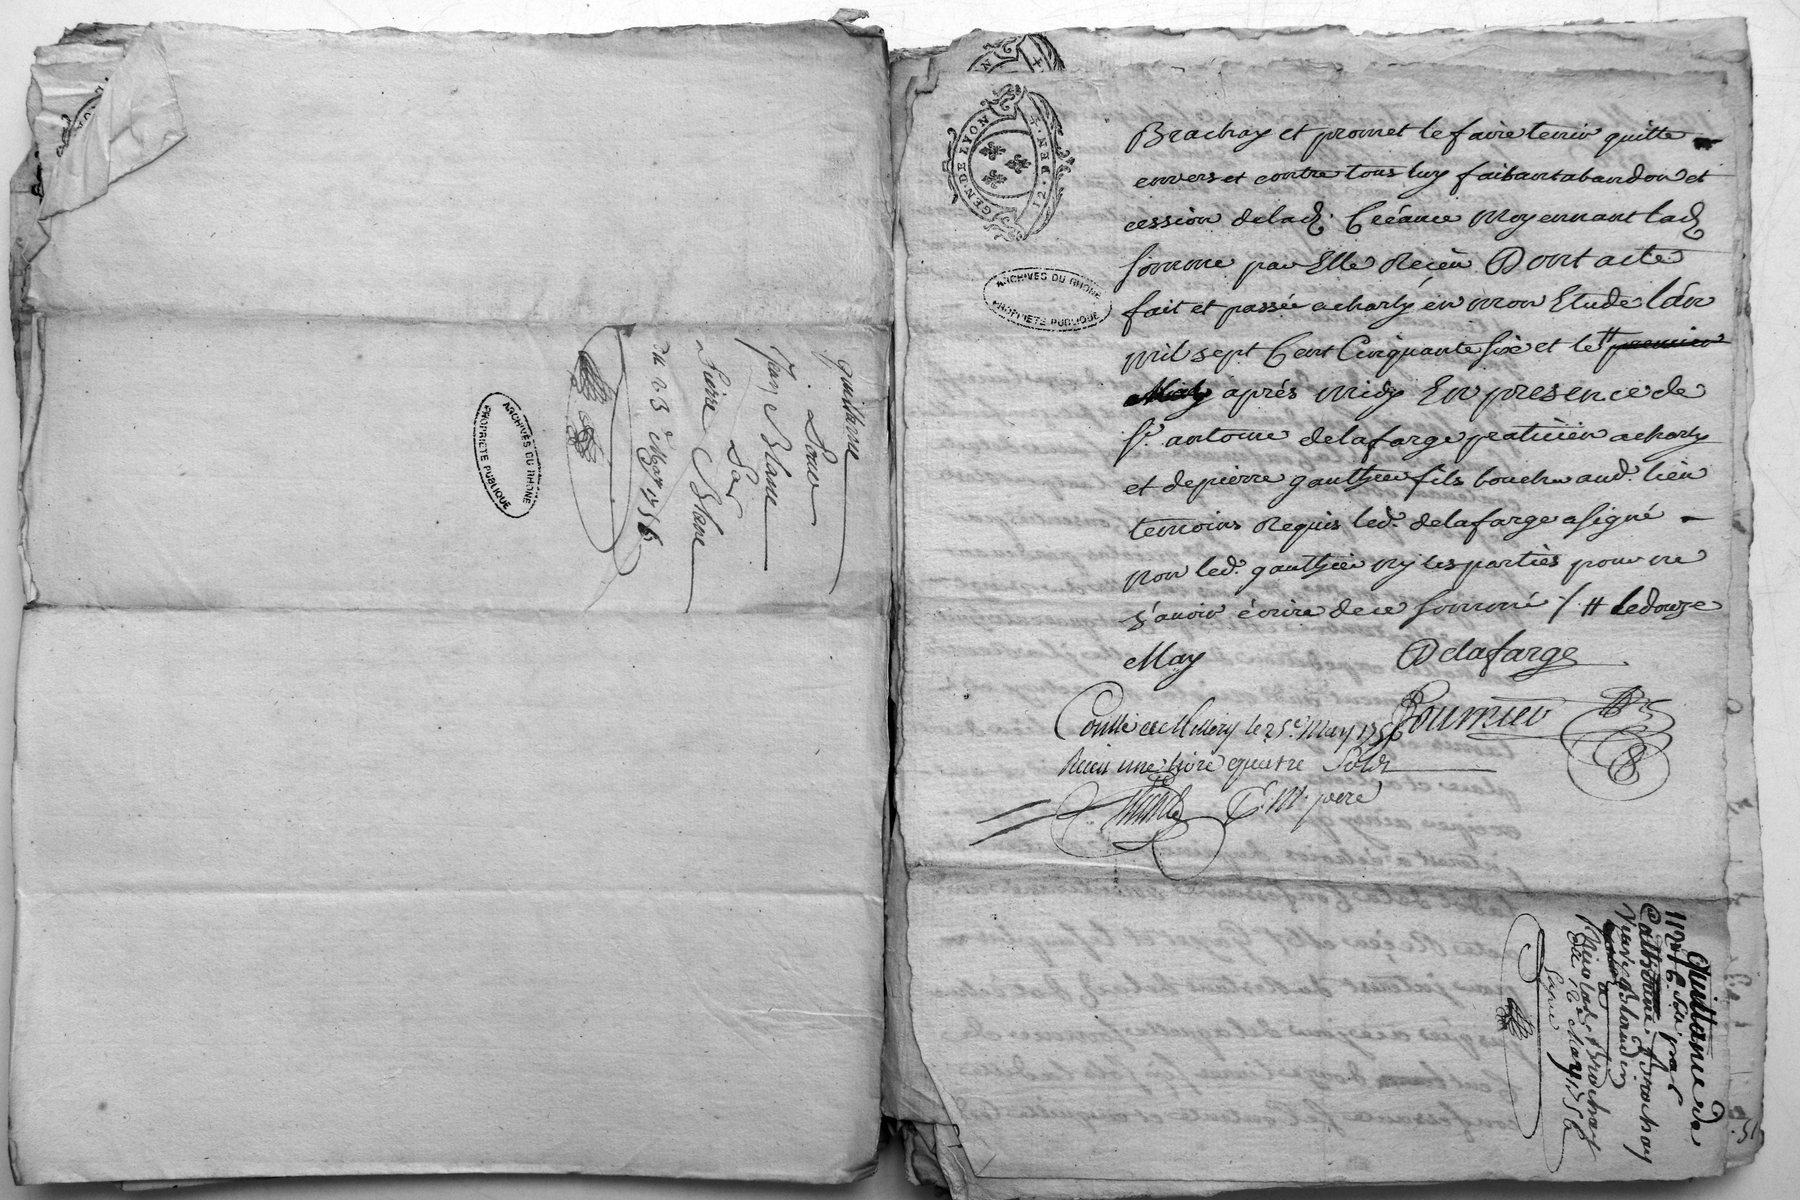 quittance
Pour
Jean Blanc
Par
Pierre Blanc
du 23 May 1756
ARCHIVES DU RHÔNE
PROPRIÉTÉ PUBLIQUE
GEN·DE LYON
12·DEN·
ARCHIVES DU RHÔNE
PROPRIÉTÉ PUBLIQUE
Brachay et promet le faire tenir quitte
envers et contre tous luy faisant abandon et
cession delad. Créance moyennant lad.
somme par Elle Reçeu Dont acte
fait et passée acharly en mon Etude l'an
mil sept Cent Cinquante six et le # premier
May après midy En presence de
Sr. antoine delafarge praticien acharly
et depierre gauthier fils boucher aud. lieu
temoins Requis led. delafarge asigné
non led. gauthier ny les partiès pour ne
sçavoir écrire dece sommé / # ledouze
May
Delafarge
Fournier
Conllé a Millery le 25e. May 1756
Receu une livre quatre Sols
père
Quittance de
112tt 6s par
Catherine Brochay
Veuve Blandin
a
Nicolas Brochat
du 12e May 1756
51.